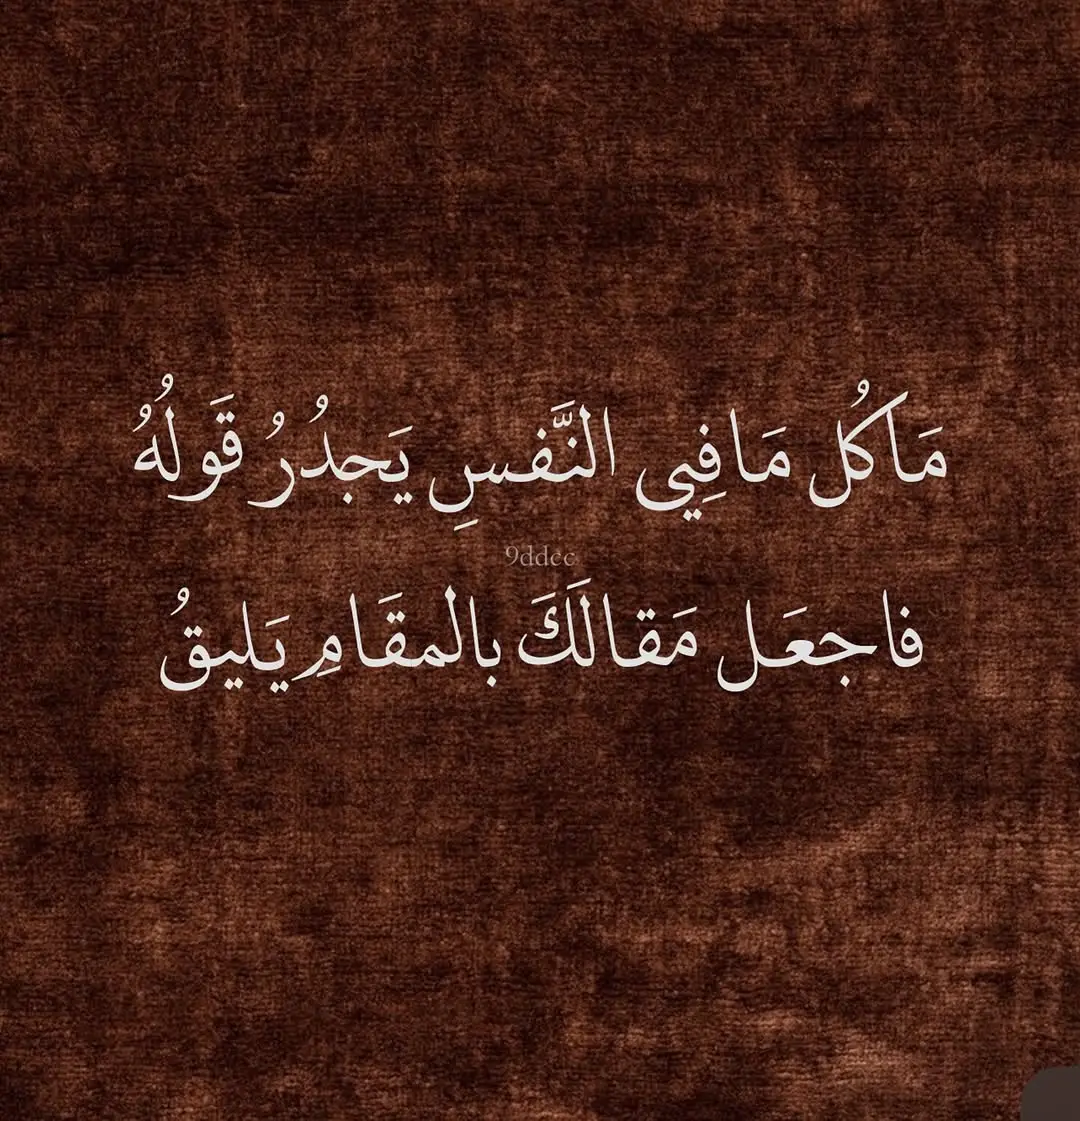 مَاكُل مَافِيي النَّفسِ يَجدُرُ قَولُهُ
9ddec
فاجعَل مَقالَكَ بالمقَامِ يَليقُ